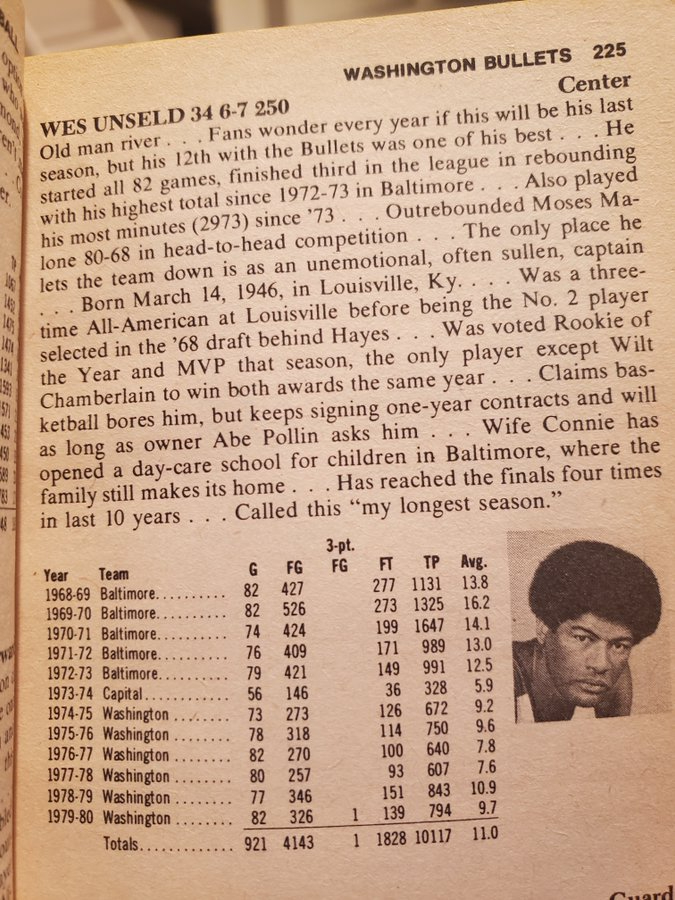 WASHINGTON BULLETS 225
WES UNSELD 34 6-7 250 Center
Old man river . . . Fans wonder every year if this will be his last
season, but his 12th with the Bullets was one of his best . . . He
started all 82 games, finished third in the league in rebounding
with his highest total since 1972-73 in Baltimore . . . Also played
his most minutes (2973) since '73 . . . Outrebounded Moses Ma-
lone 80-68 in head-to-head competition . . . The only place he
lets the team down is as an unemotional, often sullen, captain
. . . Born March 14, 1946, in Louisville, Ky. . . . Was a three-
time All-American at Louisville before being the No. 2 player
selected in the '68 draft behind Hayes . . . Was voted Rookie of
the Year and MVP that season, the only player except Wilt
Chamberlain to win both awards the same year . . . Claims bas-
ketball bores him, but keeps signing one-year contracts and will
as long as owner Abe Pollin asks him . . . Wife Connie has
opened a day-care school for children in Baltimore, where the
family still makes its home . . . Has reached the finals four times
in last 10 years . . . Called this “my longest season.”
3-pt.
Year Team G FG FG FT TP Avg.
1968-69 Baltimore.......... 82 427 277 1131 13.8
1969-70 Baltimore.......... 82 526 273 1325 16.2
1970-71 Baltimore.......... 74 424 199 1647 14.1
1971-72 Baltimore.......... 76 409 171 989 13.0
1972-73 Baltimore.......... 79 421 149 991 12.5
1973-74 Capital............ 56 146 36 328 5.9
1974-75 Washington ........ 73 273 126 672 9.2
1975-76 Washington ........ 78 318 114 750 9.6
1976-77 Washington ........ 82 270 100 640 7.8
1977-78 Washington ........ 80 257 93 607 7.6
1978-79 Washington ........ 77 346 151 843 10.9
1979-80 Washington ........ 82 326 1 139 794 9.7
Totals............. 921 4143 1 1828 10117 11.0
Guard